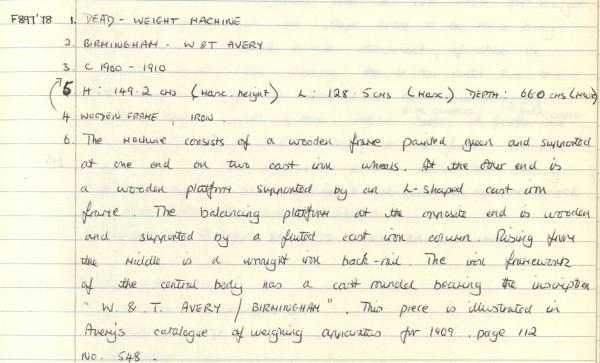 F897'78 1. DEAD - WEIGHT MACHINE
2. BIRMINGHAM - W & T AVERY
3. C 1900 - 1910
5 H: 149.2 CMS (Max. height) L: 128.5 CMS (Max.) DEPTH: 66.0 CMS (Max)
4 WOODEN FRAME, IRON.
6. The Machine consists of a wooden frame painted green and supported
at one end on two cast iron wheels. At the other end is
a wooden platform supported by an L-shaped cast iron
frame. The balancing platform at the opposite end is wooden
and supported by a fluted cast iron column. Rising from
the middle is a wrought iron back-rail. The iron framework
of the central body has a cast roundel bearing the inscription
"W. & T. AVERY / BIRMINGHAM". This piece is illustrated in
Avery's catalogue of weighing apparatus for 1909, page 112
No. 548.